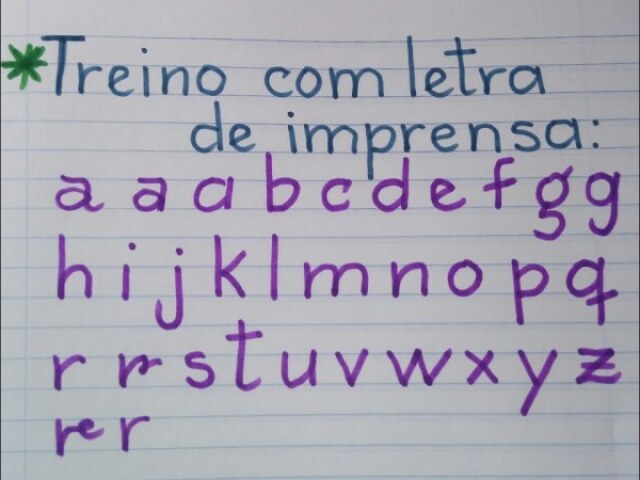 *Treino com letra
de imprensa:
a a a b c d e f g g
h i j k l m n o p q
r r s t u v w x y z
re r